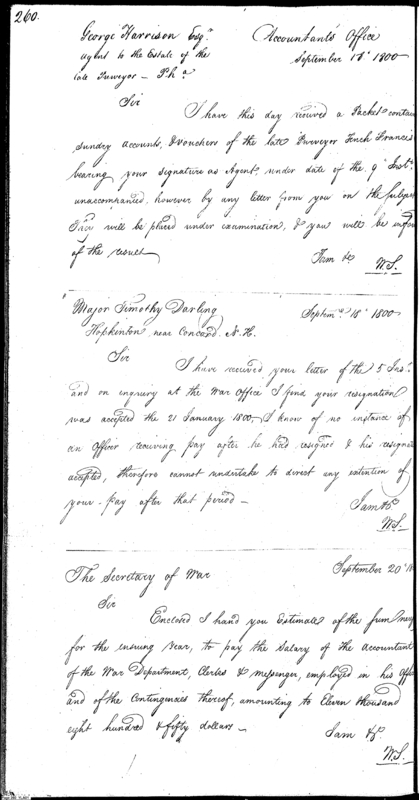 260.
George Harrison Esqr
Agent to the Estate of the
late Purveyor – Pha
Accountants Office
September 18th 1800
Sir
I have this day received a Packet
Sundry accounts, & vouchers of the late Purveyor Tench Francis
bearing your signature as Agent, under date of the 9th Inst.
unaccompanied however by any letter from you on the
will be placed under examination, & you will be
of the result
I am &c
W.S.
Major Timothy Darling
Hopkinton, near Concord, N.H.
Septemr 18th 1800
Sir
I have received your letter of the 5 Inst.
and on enquiry at the War Office I find your resignation
was accepted the 21 January 1800, I know of no instance of
an Officer receiving pay after he had resigned & his
accepted, therefore cannot undertake to direct any extention of
your pay after that period –
I am &c
W.S.
The Secretary of War
September 20th
Sir
Enclosed I hand you Estimate of the sum
for the ensuing Year, to pay the Salary of the Accountant
of the War Department, Clerks & messenger, employed in his
and of the Contingencies thereof, amounting to Eleven thousand
eight hundred & fifty dollars –
I am &c.
W.S.